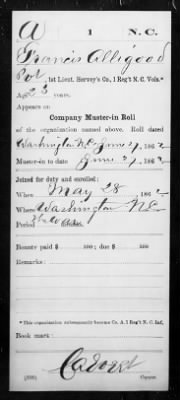 A | 1 | N.C.
Francis Alligood
Pvt, 1st Lieut. Hervey's Co., 1 Reg't N.C. Vols.*
Age 23 years.
Appears on
Company Muster-in Roll
of the organization named above. Roll dated
Washington N.C. June 27, 1862
Muster-in to date June 27, 1862
Joined for duty and enrolled:
When May 28, 1862
Where Washington N.C.
Period years.
Bounty paid $ 100; due $ 100
Remarks:
*This organization subsequently became Co. A, 1 Reg't N.C. Inf.
Book mark:
(358) Copyist.